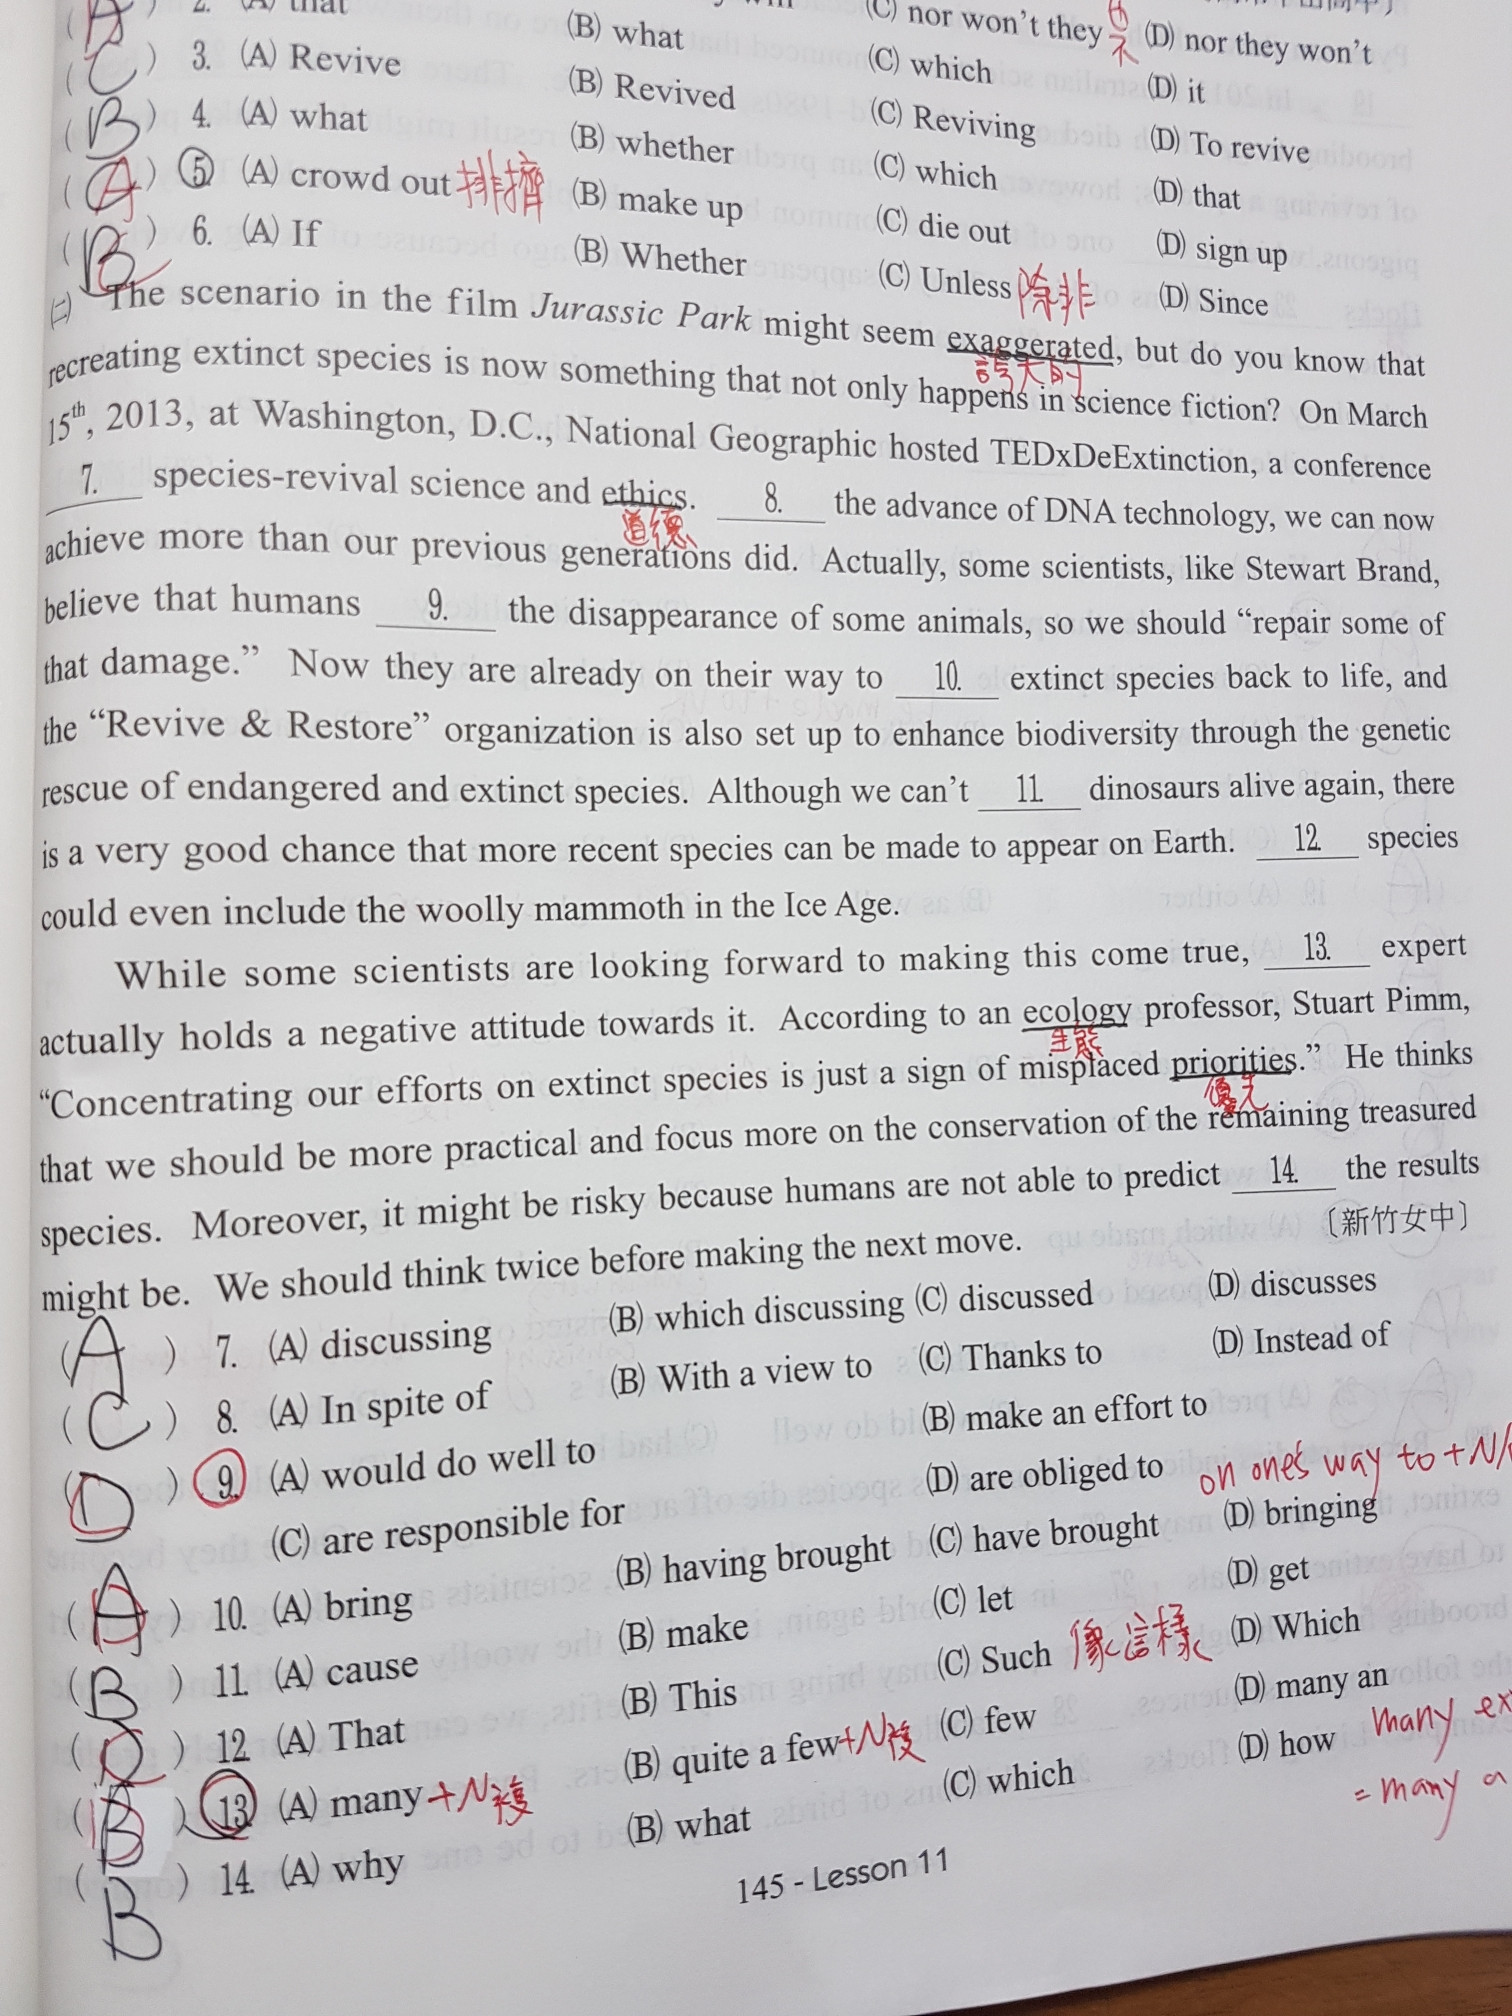 2. (A) that (B) what (C) which (D) it
(C) nor won't they (D) nor they won't
(C) 3. (A) Revive (B) Revived (C) Reviving (D) To revive
(B) 4. (A) what (B) whether (C) which (D) that
(A) 5. (A) crowd out 排擠 (B) make up (C) die out (D) sign up
(B) 6. (A) If (B) Whether (C) Unless 除非 (D) Since
㈡ The scenario in the film Jurassic Park might seem exaggerated, but do you know that
誇大的
recreating extinct species is now something that not only happens in science fiction? On March
15th, 2013, at Washington, D.C., National Geographic hosted TEDxDeExtinction, a conference
7. species-revival science and ethics. 8. the advance of DNA technology, we can now
道德
achieve more than our previous generations did. Actually, some scientists, like Stewart Brand,
believe that humans 9. the disappearance of some animals, so we should “repair some of
that damage.” Now they are already on their way to 10. extinct species back to life, and
the “Revive & Restore” organization is also set up to enhance biodiversity through the genetic
rescue of endangered and extinct species. Although we can't 11. dinosaurs alive again, there
is a very good chance that more recent species can be made to appear on Earth. 12. species
could even include the woolly mammoth in the Ice Age.
While some scientists are looking forward to making this come true, 13. expert
actually holds a negative attitude towards it. According to an ecology professor, Stuart Pimm,
生態
“Concentrating our efforts on extinct species is just a sign of misplaced priorities.” He thinks
優先
that we should be more practical and focus more on the conservation of the remaining treasured
species. Moreover, it might be risky because humans are not able to predict 14. the results
might be. We should think twice before making the next move. 〔新竹女中〕
(A) 7. (A) discussing (B) which discussing (C) discussed (D) discusses
(C) 8. (A) In spite of (B) With a view to (C) Thanks to (D) Instead of
(D) 9. (A) would do well to (B) make an effort to
(C) are responsible for (D) are obliged to
on one's way to + N/
(A) 10. (A) bring (B) having brought (C) have brought (D) bringing
(B) 11. (A) cause (B) make (C) let (D) get
( ) 12. (A) That (B) This (C) Such 像這樣 (D) Which
(B) 13. (A) many +N複 (B) quite a few +N複 (C) few (D) many an
many ex
= many a
(B) 14. (A) why (B) what (C) which (D) how
145 - Lesson 11